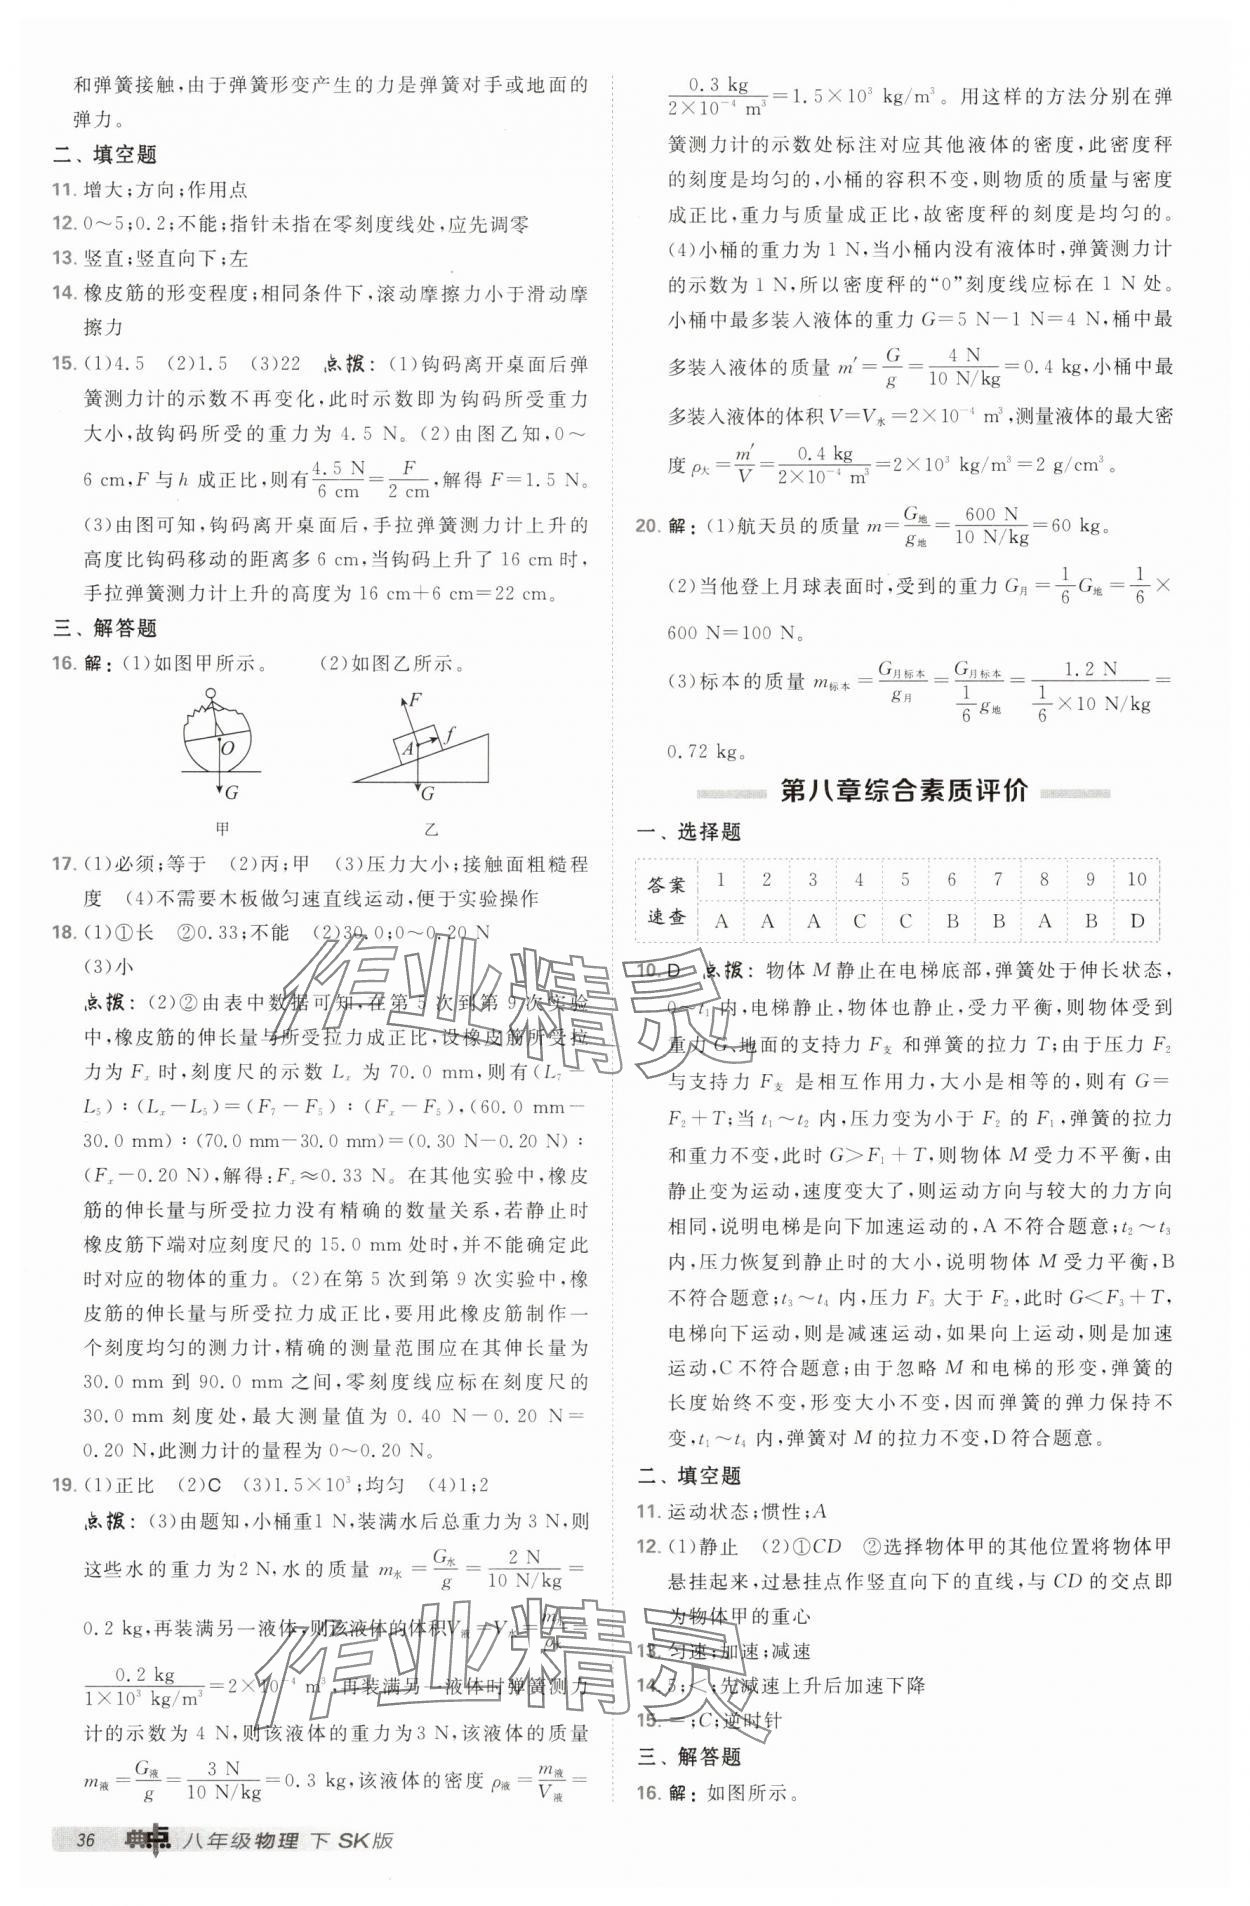 和弹簧接触,由于弹簧形变产生的力是弹簧对手或地面的
弹力。
二、填空题
11. 增大;方向;作用点
12. 0～5;0.2;不能;指针未指在零刻度线处,应先调零
13. 竖直;竖直向下;左
14. 橡皮筋的形变程度;相同条件下,滚动摩擦力小于滑动摩
擦力
15. (1)4.5 (2)1.5 (3)22 点拨:(1)钩码离开桌面后弹
簧测力计的示数不再变化,此时示数即为钩码所受重力
大小,故钩码所受的重力为 4.5 N。(2)由图乙知,0～
6 cm,F 与 h 成正比,则有4.5 N/6 cm=F/2 cm,解得 F=1.5 N。
(3)由图可知,钩码离开桌面后,手拉弹簧测力计上升的
高度比钩码移动的距离多 6 cm,当钩码上升了 16 cm 时,
手拉弹簧测力计上升的高度为 16 cm+6 cm=22 cm。
三、解答题
16. 解:(1)如图甲所示。 (2)如图乙所示。
O G
F f A G
甲 乙
17. (1)必须;等于 (2)丙;甲 (3)压力大小;接触面粗糙程
度 (4)不需要木板做匀速直线运动,便于实验操作
18. (1)①长 ②0.33;不能 (2)30.0;0～0.20 N
(3)小
点拨:(2)②由表中数据可知,在第 5 次到第 9 次实验
中,橡皮筋的伸长量与所受拉力成正比,设橡皮筋所受拉
力为 Fₓ 时,刻度尺的示数 Lₓ 为 70.0 mm,则有(L₇－
L₅)∶(Lₓ－L₅)=(F₇－F₅)∶(Fₓ－F₅),(60.0 mm－
30.0 mm)∶(70.0 mm－30.0 mm)=(0.30 N－0.20 N)∶
(Fₓ－0.20 N),解得:Fₓ≈0.33 N。在其他实验中,橡皮
筋的伸长量与所受拉力没有精确的数量关系,若静止时
橡皮筋下端对应刻度尺的 15.0 mm 处时,并不能确定此
时对应的物体的重力。(2)在第 5 次到第 9 次实验中,橡
皮筋的伸长量与所受拉力成正比,要用此橡皮筋制作一
个刻度均匀的测力计,精确的测量范围应在其伸长量为
30.0 mm 到 90.0 mm 之间,零刻度线应标在刻度尺的
30.0 mm 刻度处,最大测量值为 0.40 N－0.20 N=
0.20 N,此测力计的量程为 0～0.20 N。
19. (1)正比 (2)C (3)1.5×10³;均匀 (4)1;2
点拨:(3)由题知,小桶重1 N,装满水后总重力为 3 N,则
这些水的重力为2 N,水的质量 m水=G水/g=2 N/10 N/kg=
0.2 kg,再装满另一液体,则该液体的体积V液=V水=m水/ρ水=
0.2 kg/1×10³ kg/m³=2×10⁻⁴ m³,再装满另一液体时弹簧测力
计的示数为 4 N,则该液体的重力为3 N,该液体的质量
m液=G液/g=3 N/10 N/kg=0.3 kg,该液体的密度 ρ液=m液/V液=
0.3 kg/2×10⁻⁴ m³=1.5×10³ kg/m³。用这样的方法分别在弹
簧测力计的示数处标注对应其他液体的密度,此密度秤
的刻度是均匀的,小桶的容积不变,则物质的质量与密度
成正比,重力与质量成正比,故密度秤的刻度是均匀的。
(4)小桶的重力为 1 N,当小桶内没有液体时,弹簧测力计
的示数为 1 N,所以密度秤的“0”刻度线应标在 1 N 处。
小桶中最多装入液体的重力 G=5 N－1 N=4 N,桶中最
多装入液体的质量 m′=G/g=4 N/10 N/kg=0.4 kg,小桶中最
多装入液体的体积 V=V水=2×10⁻⁴ m³,测量液体的最大密
度 ρ大=m′/V=0.4 kg/2×10⁻⁴ m³=2×10³ kg/m³=2 g/cm³。
20. 解:(1)航天员的质量 m=G地/g地=600 N/10 N/kg=60 kg。
(2)当他登上月球表面时,受到的重力 G月=1/6G地=1/6×
600 N=100 N。
(3)标本的质量 m标本=G月标本/g月=G月标本/(1/6 g地)=1.2 N/(1/6×10 N/kg)=
0.72 kg。
第八章综合素质评价
一、选择题
答案速查 1 2 3 4 5 6 7 8 9 10
A A A C C B B A B D
10. D 点拨:物体 M 静止在电梯底部,弹簧处于伸长状态,
0～t₁ 内,电梯静止,物体也静止,受力平衡,则物体受到
重力 G、地面的支持力 F支 和弹簧的拉力 T;由于压力 F₂
与支持力 F支 是相互作用力,大小是相等的,则有 G=
F₂+T;当 t₁～t₂ 内,压力变为小于 F₂ 的 F₁,弹簧的拉力
和重力不变,此时 G>F₁+T,则物体 M 受力不平衡,由
静止变为运动,速度变大了,则运动方向与较大的力方向
相同,说明电梯是向下加速运动的,A 不符合题意;t₂～t₃
内,压力恢复到静止时的大小,说明物体 M 受力平衡,B
不符合题意;t₃～t₄ 内,压力 F₃ 大于 F₂,此时 G<F₃+T,
电梯向下运动,则是减速运动,如果向上运动,则是加速
运动,C 不符合题意;由于忽略 M 和电梯的形变,弹簧的
长度始终不变,形变大小不变,因而弹簧的弹力保持不
变,t₁～t₄ 内,弹簧对 M 的拉力不变,D 符合题意。
二、填空题
11. 运动状态;惯性;A
12. (1)静止 (2)①CD ②选择物体甲的其他位置将物体甲
悬挂起来,过悬挂点作竖直向下的直线,与 CD 的交点即
为物体甲的重心
13. 匀速;加速;减速
14. 5;<;先减速上升后加速下降
15. 一;C;逆时针
三、解答题
16. 解:如图所示。
36 典点 八年级物理 下 SK版
作业精灵
作业精灵